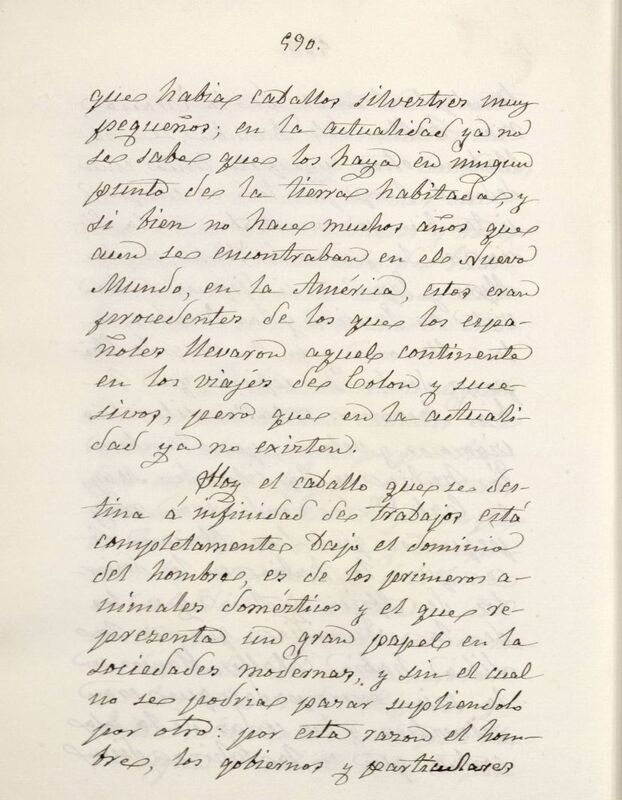 590.
que habia caballos silvestres muy
pequeños; en la actualidad ya no
se sabe que los haya en ningun
punto de la tierra habitada, y
si bien no hace muchos años que
aun se encontraban en el Nuevo
Mundo, en la América, estos eran
procedentes de los que los espa-
ñoles llevaron aquel continente
en los viajes de Colon y suce-
sivos, pero que en la actuali-
dad ya no existen.
Hoy el caballo que se des-
tina á infinidad de trabajos está
completamente bajo el dominio
del hombre, es de los primeros a-
nimales domésticos y el que re-
presenta un gran papel en la
sociedades modernas, y sin el cual
no se podria pasar supliendolo
por otro: por esta razon el hom-
bre, los gobiernos y particulares